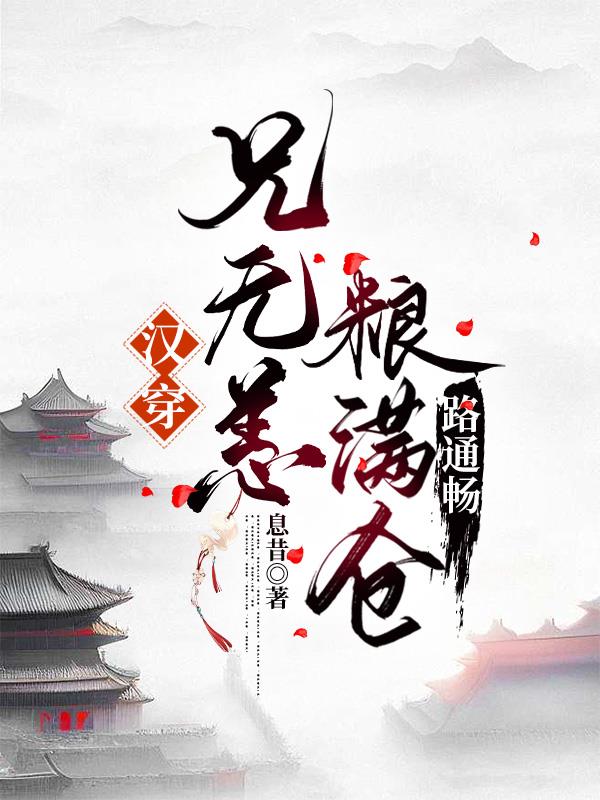 汉穿
兄无恙
粮满仓
路通畅
息昔◎著